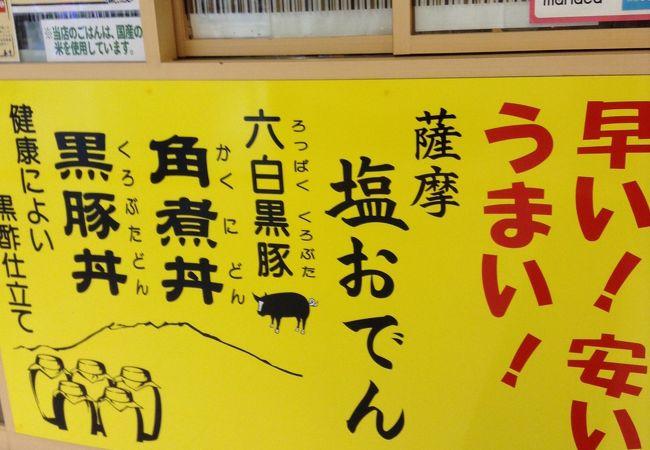 ※当店のごはんは、国産の
米を使用しています。
早い！安い
うまい！
薩摩
塩おでん
ろっぱく くろぶた
六白黒豚
かくに どん
角煮丼
くろぶたどん
黒豚丼
健康によい
黒酢仕立て